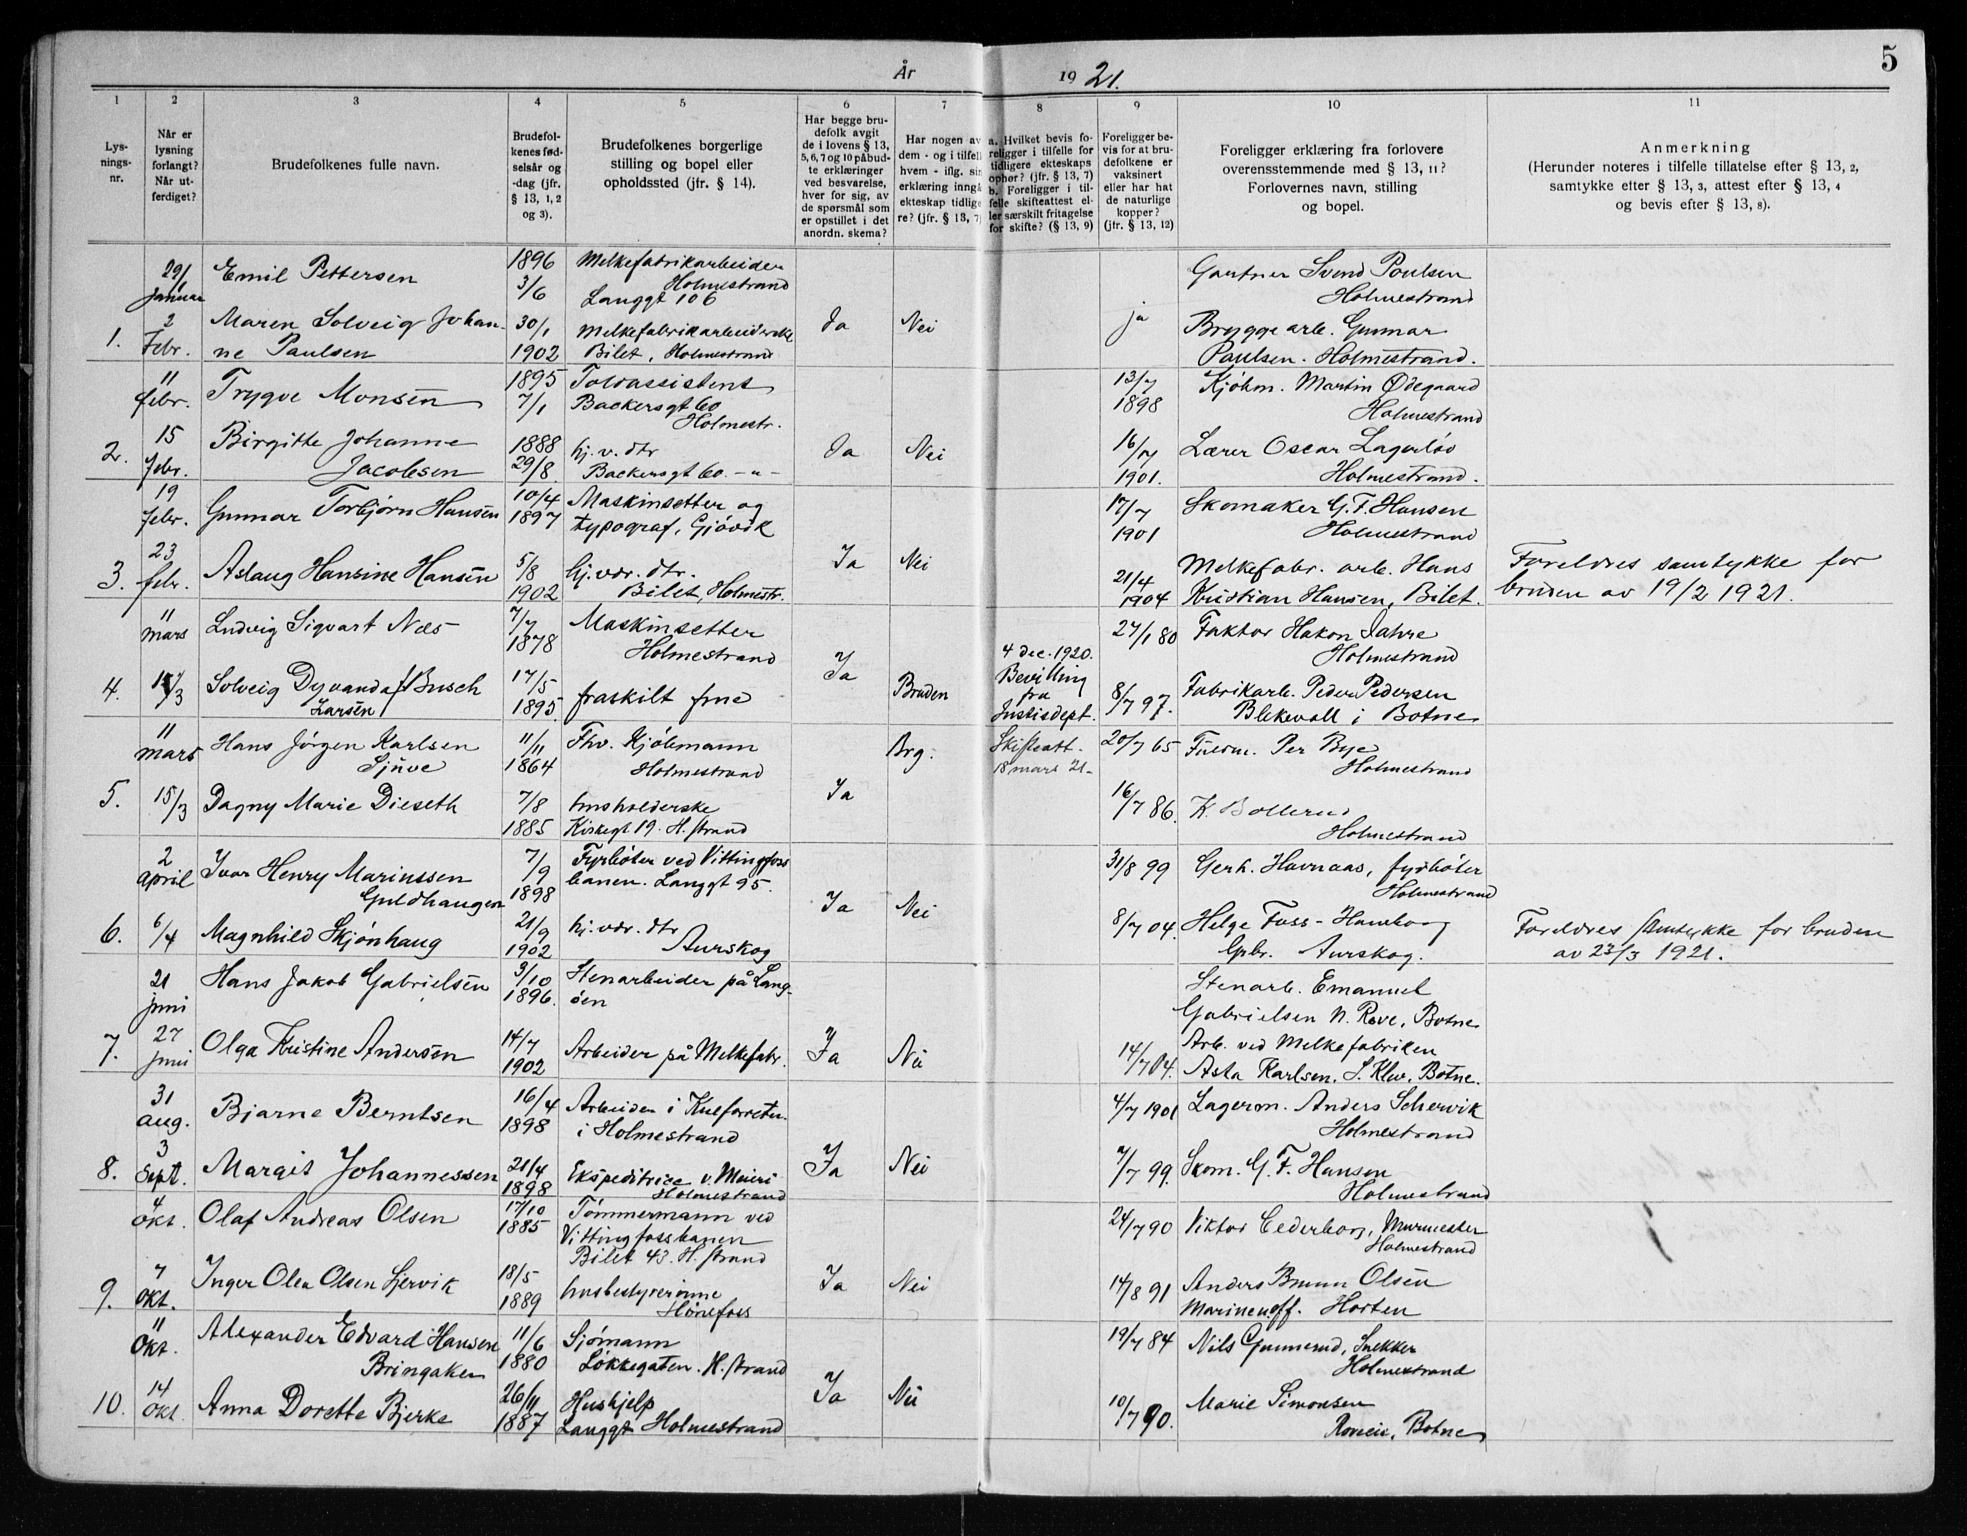 År 1921.
5
1 2 3 4 5 6 7 8 9 10 11
Lys-
nings-
nr.
Når er
lysning
forlangt?
Når ut-
ferdiget?
Brudefolkenes fulle navn.
Brudefol-
kenes fød-
selsår og
-dag (jfr.
§ 13, 1, 2
og 3).
Brudefolkenes borgerlige
stilling og bopel eller
opholdssted (jfr. § 14).
Har begge bru-
defolk avgit
de i lovens § 13,
5, 6, 7 og 10 påbud-
te erklæringer
ved besvarelse,
hver for sig, av
de spørsmål som
er opstillet i det
anordn. skema?
Har nogen av
dem - og i tilfelle
hvem - iflg. sin
erklæring inngå
ekteskap tidlige
re? (jfr. § 13, 7)
a. Hvilket bevis fo-
religger i tilfelle for
tidligere ekteskaps
ophør? (jfr. § 13, 7)
b. Foreligger i til-
felle skifteattest el-
ler særskilt fritagelse
for skifte? (§ 13, 9)
Foreligger be-
vis for at bru-
defolkene er
vaksinert
eller har hat
de naturlige
kopper?
(jfr. § 13, 12)
Foreligger erklæring fra forlovere
overensstemmende med § 13, 11?
Forlovernes navn, stilling
og bopel.
Anmerkning
(Herunder noteres i tilfelle tillatelse efter § 13, 2,
samtykke efter § 13, 3, attest efter § 13, 4
og bevis efter § 13, 8).
29/1
Januar
Emil Pettersen
1896
3/6
Melkefabrikarbeider
Holmestrand
Langgt 106
Gartner Svend Poulsen
Holmestrand
1.
2
Febr.
Maren Solveig Johan-
ne Paulsen
30/1
1902
Melkefabrikarbeiderske
Bilet, Holmestrand
Ja
Nei
ja
Brygge arb. Gunnar
Paulsen. Holmestrand.
11
febr.
Trygve Monsen
1895
7/1
Toldassistent
Backersgt 60
Holmestr.
13/7
1898
Kjøbm. Martin Ødegaard
Holmestrand
2.
15
febr.
Birgitte Johanne
Jacobsen
1888
29/8.
hj. v. dtr
Backersgt 60. -"-
Ja
Nei
16/7
1901.
Lærer Oscar Lagerløv
Holmestrand.
19
febr.
Gunnar Torbjørn Hansen
10/4
1897
Maskinsetter og
typograf, Gjøvik
17/7
1901
Skomaker G. F. Hansen
Holmestrand
3.
23
febr.
Aslaug Hansine Hansen
5/8
1902
hj. vær. dtr.
Bilet, Holmestr.
Ja
Nei
21/4
1904
Melkefabr. arb. Hans
Kristian Hansen, Bilet.
Foreldres samtykke for
bruden av 19/2 1921.
11
mars
Ludvig Sigvart Næs
7/7
1878
Maskinsetter
Holmestrand
27/1 80
Faktor Hakon Jahre
Holmestrand
4.
17/3
Solveig Dyvanda f Busch
Larsen
17/5
1895.
fraskilt frue
Ja
Bruden
4 dec. 1920.
Bevilling
fra
Justisdept.
8/7 97.
Fabrikarb. Peder Pedersen
Blekevoll i Botne
11
mars
Hans Jørgen Karlsen
Sjuve
11/11
1864
Fhv. Kjøbmann
Holmestrand
Brg.
Skifteatt.
18 mars 21-
20/7 65
Fuldm. Per Bye
Holmestrand
5.
15/3
Dagny Marie Dieseth
7/8
1885
husholderske
Kirkegt 19. H. strand
Ja
16/7 86.
K. Bollerud
Holmestrand
2
April
Ivar Henry Marinssen
Guldhaugen
7/9
1898
Fyrbøter ved Vittingfoss
banen. Langgt 95.
31/8 99
Gerh. Havnaas, fyrbøter
Holmestrand
6.
6/4
Magnhild Skjønhaug
21/9
1902
hj. vær. dtr
Aurskog
Ja
Nei
8/7 04.
Helge Foss-Hamborg
Gbr. Aurskog.
Foreldres samtykke for bruden
av 23/3 1921.
21
juni
Hans Jakob Gabrielsen
9/10
1896.
Stenarbeider på Lang-
øen
Stenarb. Emanuel
Gabrielsen N. Rove, Botne
7.
27
juni
Olga Kristine Andersen
14/7
1902
Arbeider på Melkefabr.
Ja
Nei
14/7 04.
Arb. ved Melkefabriken
Asta Karlsen, S. Klev. Botne.
31
aug.
Bjarne Berntsen
16/4
1898
Arbeider i Kulforretn.
i Holmestrand
4/7 1901
Lagerm. Anders Schervik
Holmestrand
8.
3
Sept.
Margit Johannessen
21/4
1898
Ekspeditrice v. Meieri
Holmestrand
Ja
Nei
7/7 99.
Skom. G. F. Hansen
Holmestrand
4
okt.
Olaf Andreas Olsen
17/10
1885
Tømmermann ved
Vittingfossbanen
Bilet 43. H. strand
24/7 90
Viktor Cederborg, Murmester
Holmestrand
9.
7
okt.
Inger Olea Olsen Lervik
18/5
1889
husbestyrerinne
Hønefoss
Ja
Nei
14/8 91
Anders Bruun Olsen
Marineuoff. Horten
11
Okt.
Alexander Edvard Hansen
Bringaker
11/6
1880
Sjømann
Løkkegaten. H. strand
19/7 84
Nils Gunnerud, Snekker
Holmestrand
10.
14
okt.
Anna Dorette Bjerke
26/11
1887
Hushjelp
Langgt Holmestrand
Ja
Nei
10/7 90.
Marie Simonsen
Roveie, Botne